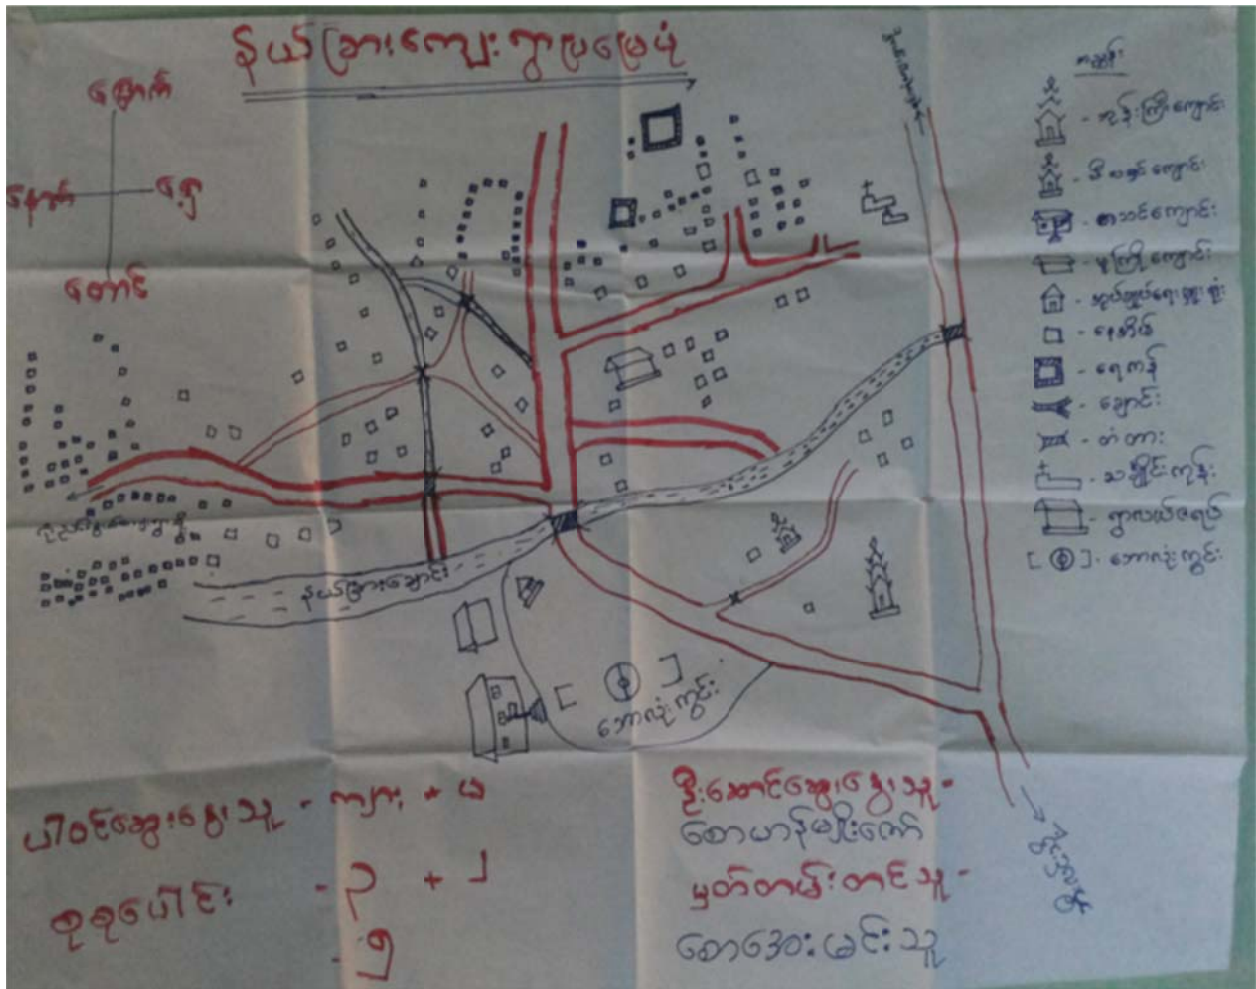 နယ်ခြားကျေးရွာပြမြေပုံ
မြောက်
အနောက်
အရှေ့
တောင်
အညွှန်း
- ဘုန်းကြီးကျောင်း
- သီလရှင်ကျောင်း
- စာသင်ကျောင်း
- မူကြိုကျောင်း
- အုပ်ချုပ်ရေးမှူးရုံး
- နေအိမ်
- ရေကန်
- ချောင်း
- တံတား
- သင်္ချိုင်းကုန်း
- ရွာလယ်ဇရပ်
- ဘောလုံးကွင်း
နယ်ခြားချောင်း
ဘောလုံးကွင်း
ပါဝင်ဆွေးနွေးသူ - ကျား + မ
- ၃ + ၂
စုစုပေါင်း
- ၅
ဦးဆောင်ဆွေးနွေးသူ -
စောဟန်မျိုးကော်
မှတ်တမ်းတင်သူ -
စောအေးမင်းသူ